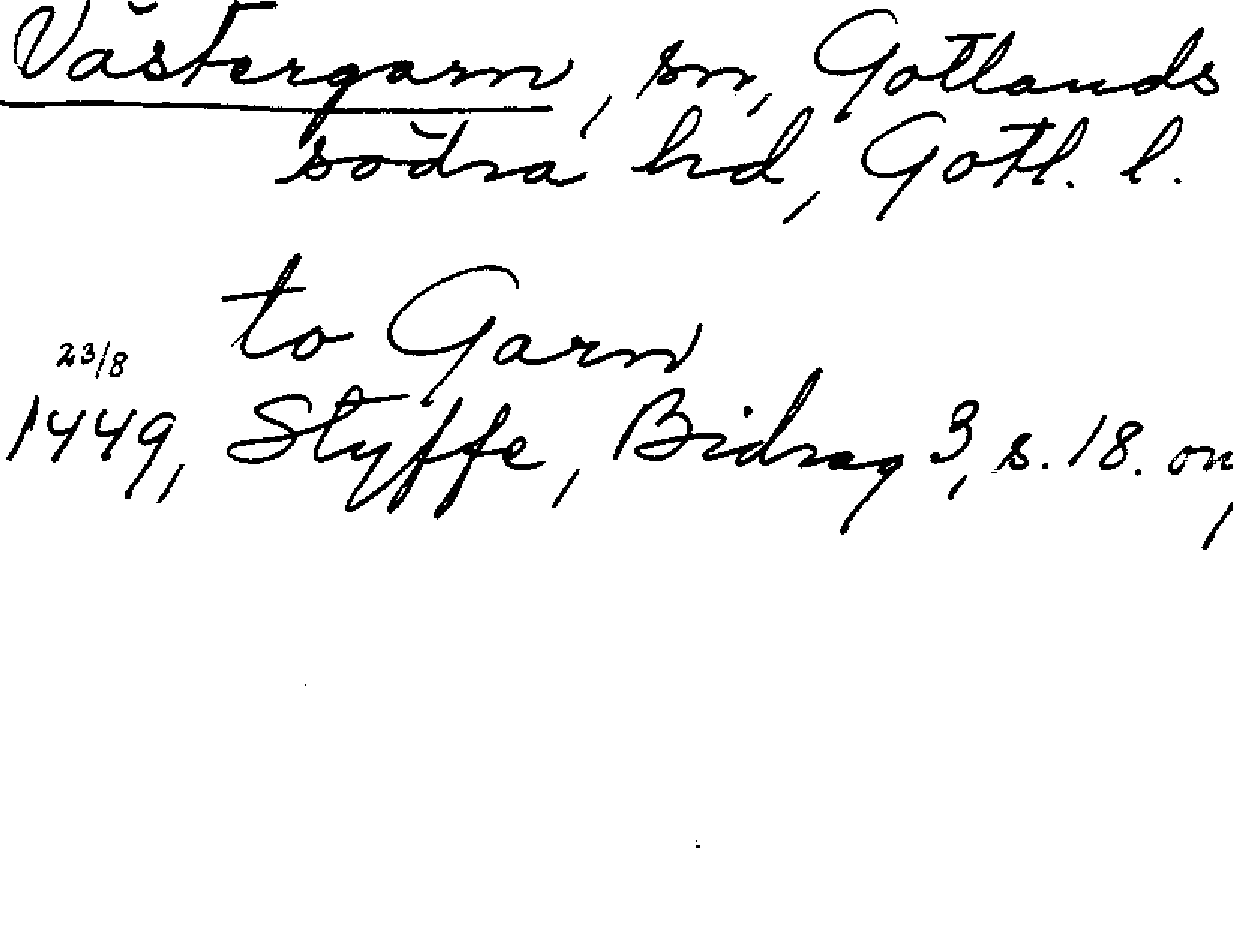 Västergarn, sn, Gotlands
södra hd, Gotl. l.
to Garn
23/8
1449, Styffe, Bidrag 3, s. 18. or,